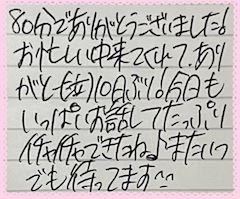 80分でありがとうございました!
お忙しい中来てくれて、あり
がとー(泣)10日ぶり!今日も
いっぱいお話してたっぷり
イチャイチャできたね♪またいつ
でも待ってます^^